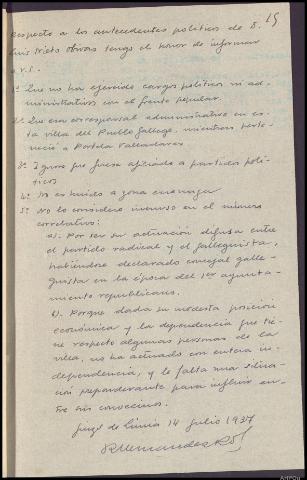 15
Respecto a los antecedentes politicos de D.
Luis Nieto Olivas tengo el honor de informar
a V.S.
1º Que no ha ejercido cargos politicos ni ad-
ministrativos con el frente popular.
2º Que era corresponsal administrativo en es-
ta villa del Pueblo Gallego, mientras perte-
neció a Portela Valladares
3º Ignoro que fuese afiliado a partidos polí-
ticos
4º No es huido a zona enemiga
5º No lo considero incurso en el número
correlativo:
a). Por ser su activación difusa entre
el partido radical y el galleguista,
habiéndose declarado concejal galle-
guista en la época del 1er ayunta-
miento republicano.
b). Porque dada su modesta posición
económica y la dependencia que tie-
ne respecto algunas personas de la
villa, no ha actuado con entera in-
dependencia, y le falta una situa-
ción preponderante para influir en-
tre sus convecinos.
Ginzo de Limia 14 julio 1937